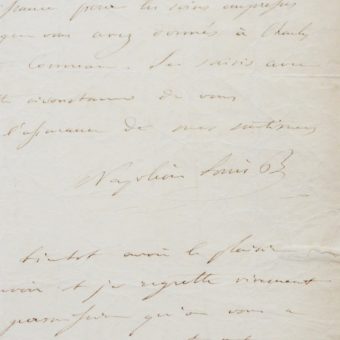 pour les soins empressés
que vous avez donnés à Charles
commun. Je saisis avec
circonstance de vous
l'assurance de mes sentimens
Napoléon Louis B
bientot avoir le plaisir
voir et je regrette vivement
permission qu'on vous a